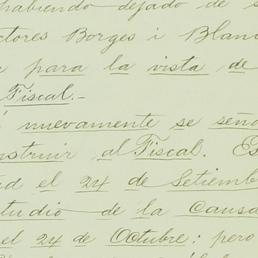 habiendo dejado de s
ctores Borges i Blan
para la vista de
Fiscal.-
nuevamente se seño
nstruir al Fiscal. Es
d el 24 de Setiemb
tudio de la Causa
el 24 de Octubre: pero